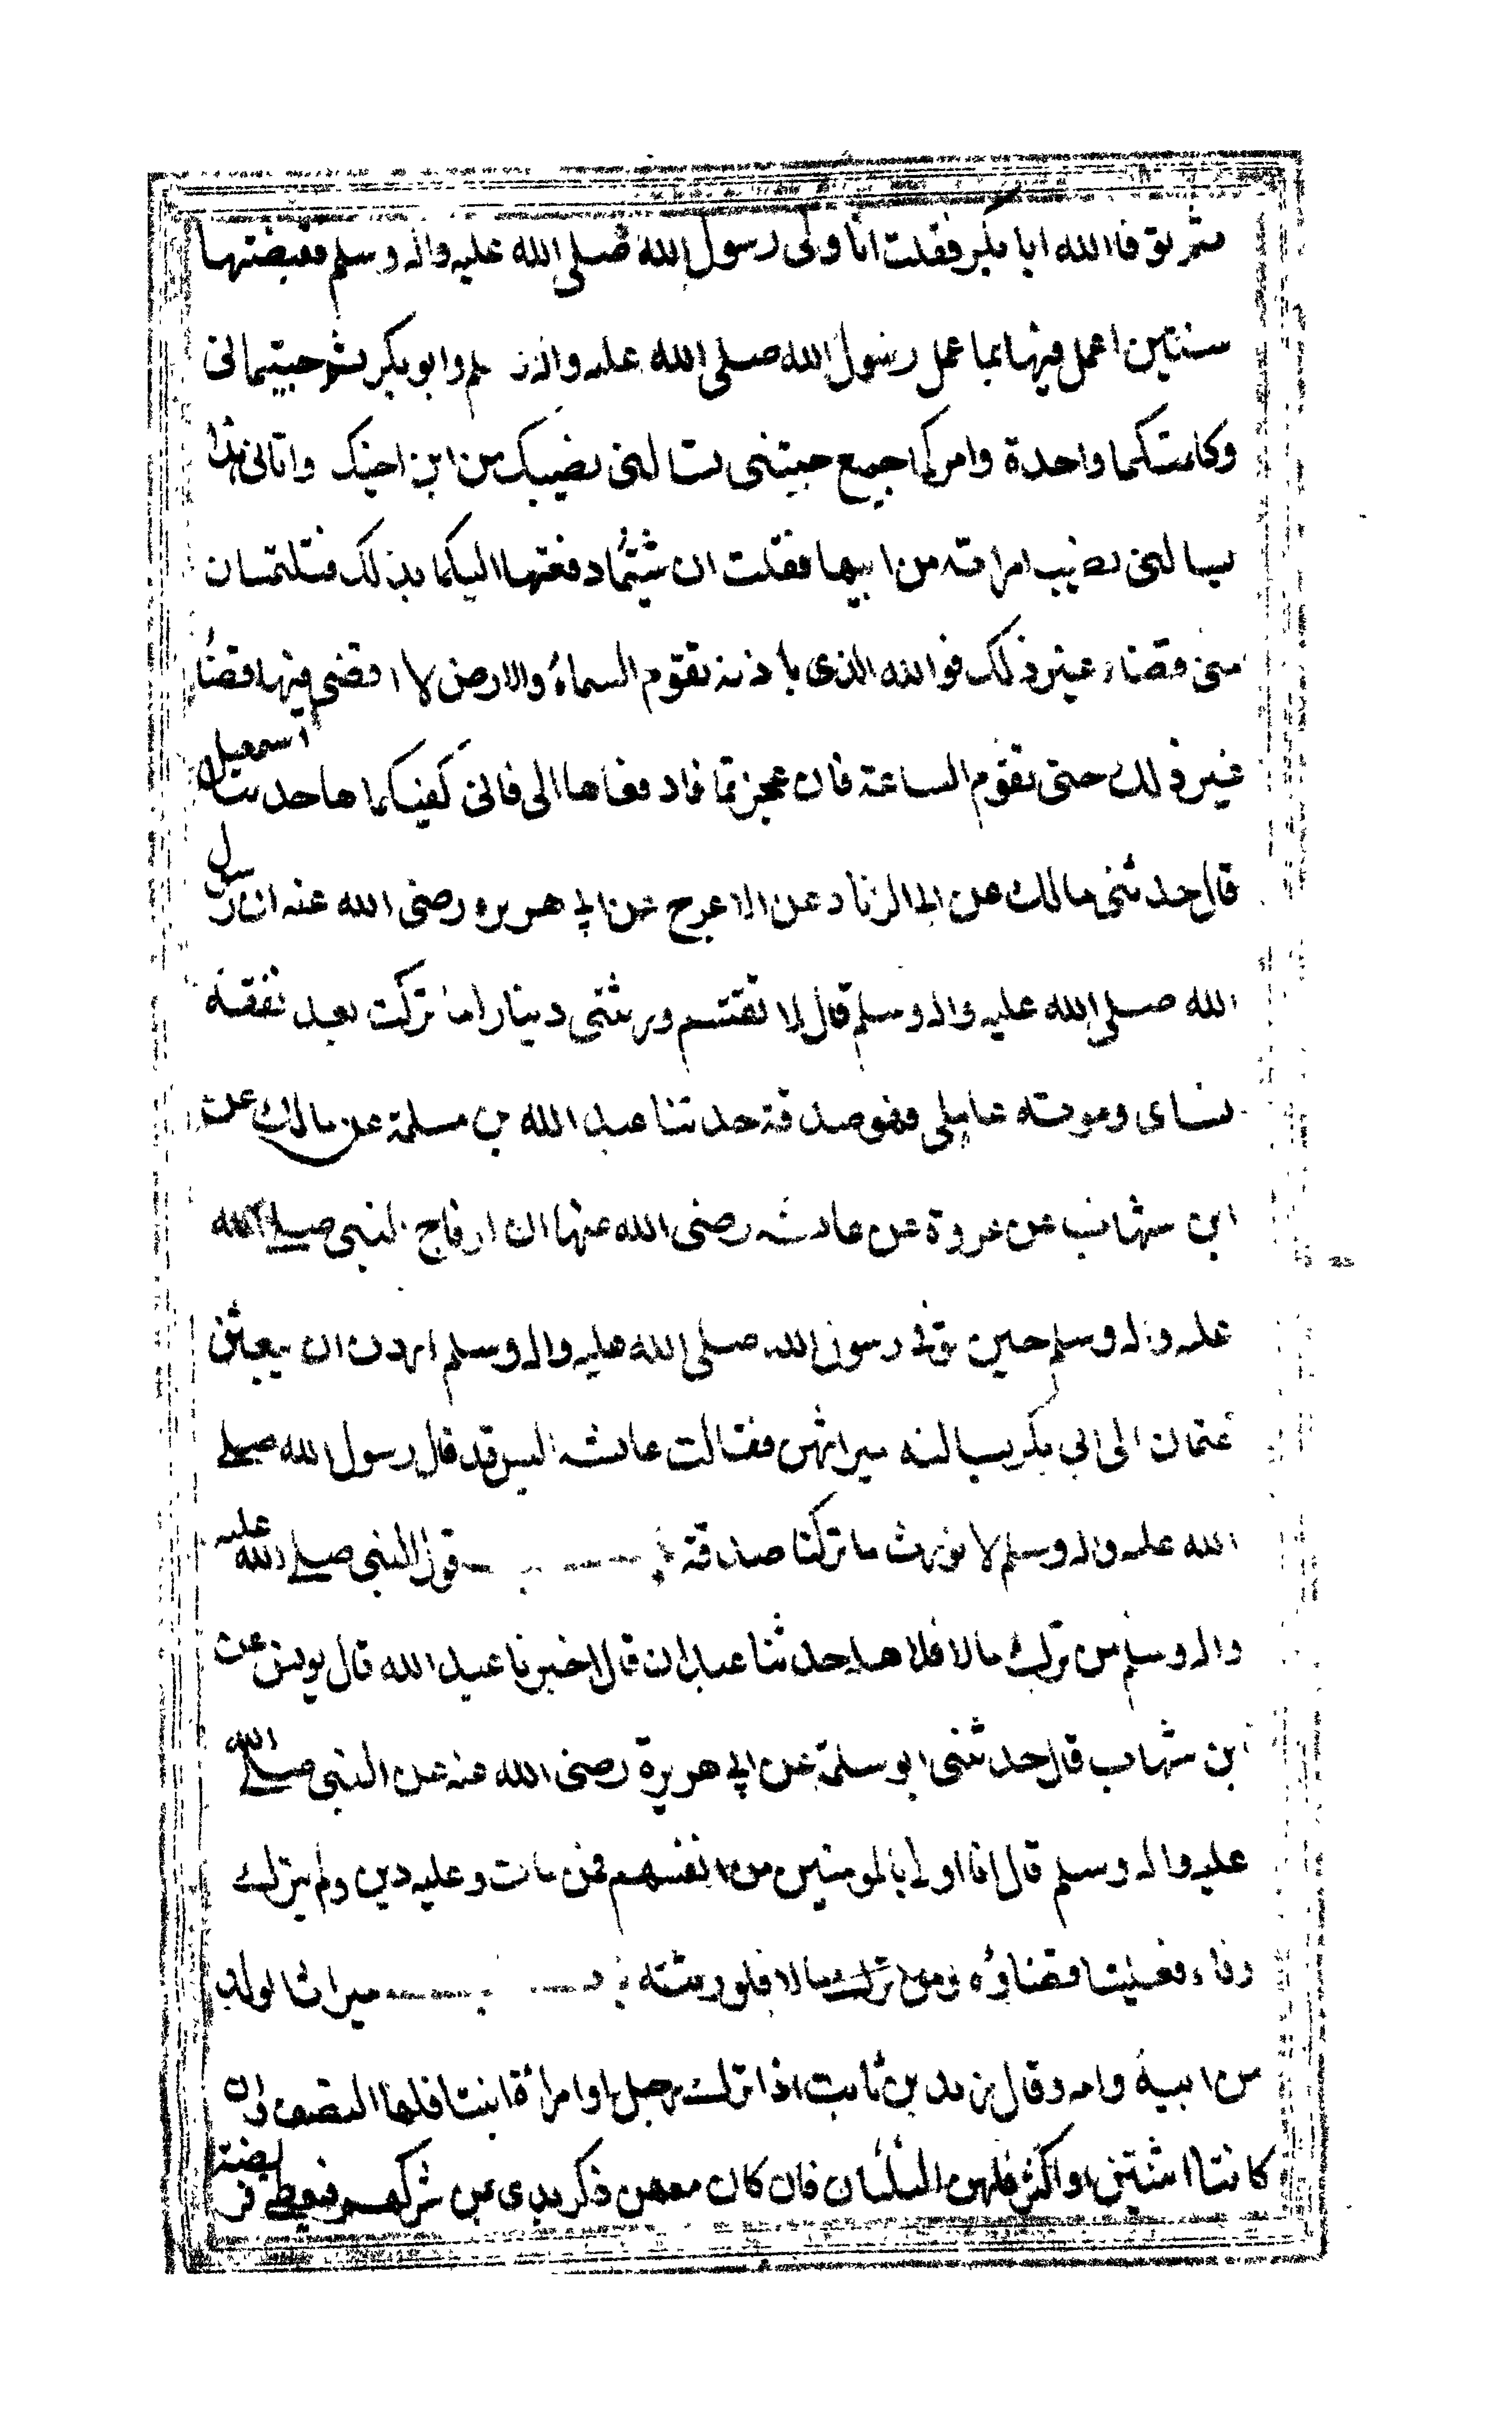 ثم توفا الله ابا بكر فقلت انا ولى رسول الله صلى الله عليه واله وسلم فقبضتها
سنتين اعمل فيها بما عمل رسول الله صلى الله عليه واله وسلم وابو بكر ثم جيتمانى
وكلمتكما واحدة وامركما جميع جيتنى تسالنى نصيبك من ابن اخيك واتانى هذا
يسالنى نصيب امراته من ابيها فقلت ان شيتما دفعتها اليكما بذلك فتلتمسان
منى قضاء غير ذلك فوالله الذى باذنه تقوم السماء والارض لا اقضى فيها قضا
غير ذلك حتى تقوم الساعة فان عجزتما فادفعاها الى فانى كفيكماها حدثنا اسمعيل
قال حدثنى مالك عن ابى الزناد عن الاعرج عن ابى هريره رضى الله عنه ان رسول
الله صلى الله عليه واله وسلم قال لا تقتسم ورثتى دينارا ما تركت بعد نفقة
نساى وموته عاملى فهو صدقة حدثنا عبد الله بن مسلمة عن مالك عن
ابن شهاب عن عروة عن عايشه رضى الله عنها ان ازواج النبى صلى الله
عليه واله وسلم حين توفى رسول الله صلى الله عليه واله وسلم اردن ان يبعثن
عثمان الى ابى بكر يسالنه ميراثهن فقالت عايشه اليس قد قال رسول الله صلى
الله عليه واله وسلم لا نورث ما تركنا صدقة قول النبى صلى الله عليه
واله وسلم من ترك مالا فلاهله حدثنا عبدان قال اخبرنا عبد الله قال يونس عن
ابن شهاب قال حدثنى ابو سلمة عن ابى هريرة رضى الله عنه عن النبى صلى الله
عليه واله وسلم قال انا اولى بالمومنين من انفسهم فمن مات وعليه دين ولم يترك
وفاء فعلينا قضاؤه ومن ترك مالا فلورثته ميراث الولد
من ابيه وامه وقال زيد بن ثابت اذا ترك رجل او امراة ابنتا فلها النصف وان
كانتا اثنتين او اكثر فلهن الثلثان فان كان معهن ذكر بدى بمن شركهم فيعطى فريضته